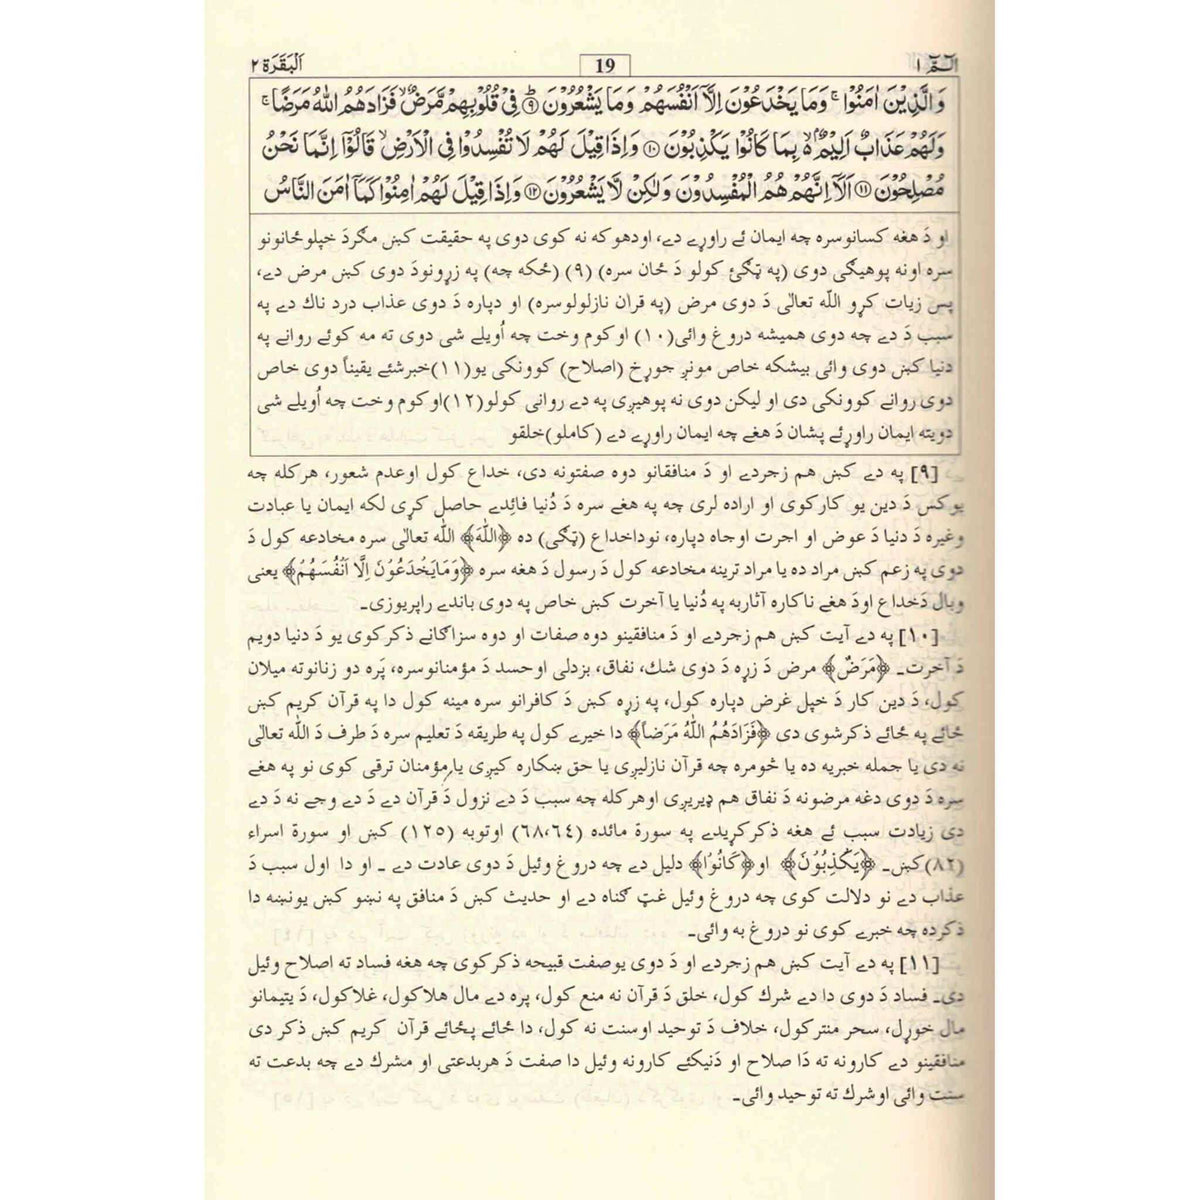 الٓمّٓ ۱
19
اَلْبَقَرَة ۲
وَالَّذِيْنَ اٰمَنُوْا ۚ وَمَا يَخْدَعُوْنَ اِلَّآ اَنْفُسَهُمْ وَمَا يَشْعُرُوْنَ ۹ فِيْ قُلُوْبِهِمْ مَّرَضٌ ۙ فَزَادَهُمُ اللّٰهُ مَرَضًا ۚ
وَلَهُمْ عَذَابٌ اَلِيْمٌۢ ۙ۬ بِمَا كَانُوْا يَكْذِبُوْنَ ۱۰ وَاِذَا قِيْلَ لَهُمْ لَا تُفْسِدُوْا فِى الْاَرْضِ ۙ قَالُوْٓا اِنَّمَا نَحْنُ
مُصْلِحُوْنَ ۱۱ اَلَآ اِنَّهُمْ هُمُ الْمُفْسِدُوْنَ وَلٰكِنْ لَّا يَشْعُرُوْنَ ۱۲ وَاِذَا قِيْلَ لَهُمْ اٰمِنُوْا كَمَآ اٰمَنَ النَّاسُ
او دَ هغه کسانوسره چه ایمان ئے راوړے دے، اودهوکه نه کوی دوی په حقیقت کښ مگردَ خپلوځانونو
سره اونه پوهیګی دوی (په ټګئ کولو دَ ځان سره) (۹) (ځکه چه) په زړونودَ دوی کښ مرض دے،
پس زیات کړو اللّه تعالٰی دَ دوی مرض (په قران نازلولوسره) او دپاره دَ دوی عذاب درد ناك دے په
سبب دَ دے چه دوی همیشه دروغ وائی(۱۰) اوکوم وخت چه اُویلے شی دوی ته مه کوئے روانے په
دنیا کښ دوی وائی بیشکه خاص مونږ جوړخ (اصلاح) کوونکی یو(۱۱)خبرشئے یقیناً دوی خاص
دوی روانے کوونکی دی او لیکن دوی نه پوهیږی په دے روانی کولو(۱۲)اوکوم وخت چه اُویلے شی
دویته ایمان راوړئے پشان دَ هغے چه ایمان راوړے دے (کاملو)خلقو
[۹] په دے کښ هم زجردے او دَ منافقانو دوه صفتونه دی، خداع کول اوعدم شعور، هرکله چه
یوکس دَ دین یو کارکوی او اراده لری چه په هغے سره دَ دُنیا فائِدے حاصل کړی لکه ایمان یا عبادت
وغیره دَ دنیا دَ عوض او اجرت اوجاه دپاره، نوداخداع (ټګی) ده ﴿اللّٰهَ﴾ اللّه تعالٰی سره مخادعه کول دَ
دوی په زعم کښ مراد ده یا مراد ترینه مخادعه کول دَ رسول دَ هغه سره ﴿وَمَايَخْدَعُوْنَ اِلَّا اَنْفُسَهُمْ﴾ یعنی
وبال دَخداع اودَ هغے ناکاره آثاربه په دُنیا یا آخرت کښ خاص په دوی باندے راپریوزی۔
[۱۰] په دے آیت کښ هم زجردے او دَ منافقینو دوه صفات او دوه سزاګانے ذکرکوی یو دَ دنیا دویم
دَ آخرت۔ ﴿مَرَضٌ﴾ مرض دَ زړه دَ دوی شك، نفاق، بزدلی اوحسد دَ مؤمنانوسره، پَره دو زنانوته میلان
کول، دَ دین کار دَ خپل غرض دپاره کول، په زړه کښ دَ کافرانو سره مینه کول دا په قرآن کریم کښ
ځائے په ځائے ذکرشوی دی ﴿فَزَادَهُمُ اللّٰهُ مَرَضاً﴾ دا خیرے کول په طریقه دَ تعلیم سره دَ طرف دَ اللّه تعالٰی
نه دی یا جمله خبریه ده یا څومره چه قرآن نازلیږی یا حق ښکاره کیږی یا مؤمنان ترقی کوی نو په هغے
سره دَ دوی دغه مرضونه دَ نفاق هم ډیریږی اوهرکله چه سبب دَ دے نزول دَ قرآن دے دَ دے وجے نه دَ دے
دی زیادت سبب ئے هغه ذکرکړیدے په سورة مائده (۶۸،۶۴) اوتوبه (۱۲۵) کښ او سورة اسراء
(۸۲)کښ۔ ﴿يَكْذِبُوْنَ﴾ او﴿كَانُوْا﴾ دلیل دے چه دروغ وئیل دَ دوی عادت دے ۔ او دا اول سبب دَ
عذاب دے نو دلالت کوی چه دروغ وئیل غټ ګناه دے او حدیث کښ دَ منافق په نښو کښ یونښه دا
ذکرده چه خبرے کوی نو دروغ به وائی۔
[۱۱] په دے آیت کښ هم زجردے او دَ دوی یوصفت قبیحه ذکرکوی چه هغه فساد ته اصلاح وئیل
دی۔ فساد دَ دوی دا دے شرك کول، خلق دَ قرآن نه منع کول، پره دے مال هلاکول، غلاکول، دَ یتیمانو
مال خوړل، سحر منترکول، خلاف دَ توحید اوسنت نه کول، دا ځائے پځائے قرآن کریم کښ ذکر دی
منافقینو دے کارونه ته دَا صلاح او دَنیکئے کارونه وئیل دا صفت دَ هربدعتی او مشرك دے چه بدعت ته
سنت وائی اوشرك ته توحید وائی۔